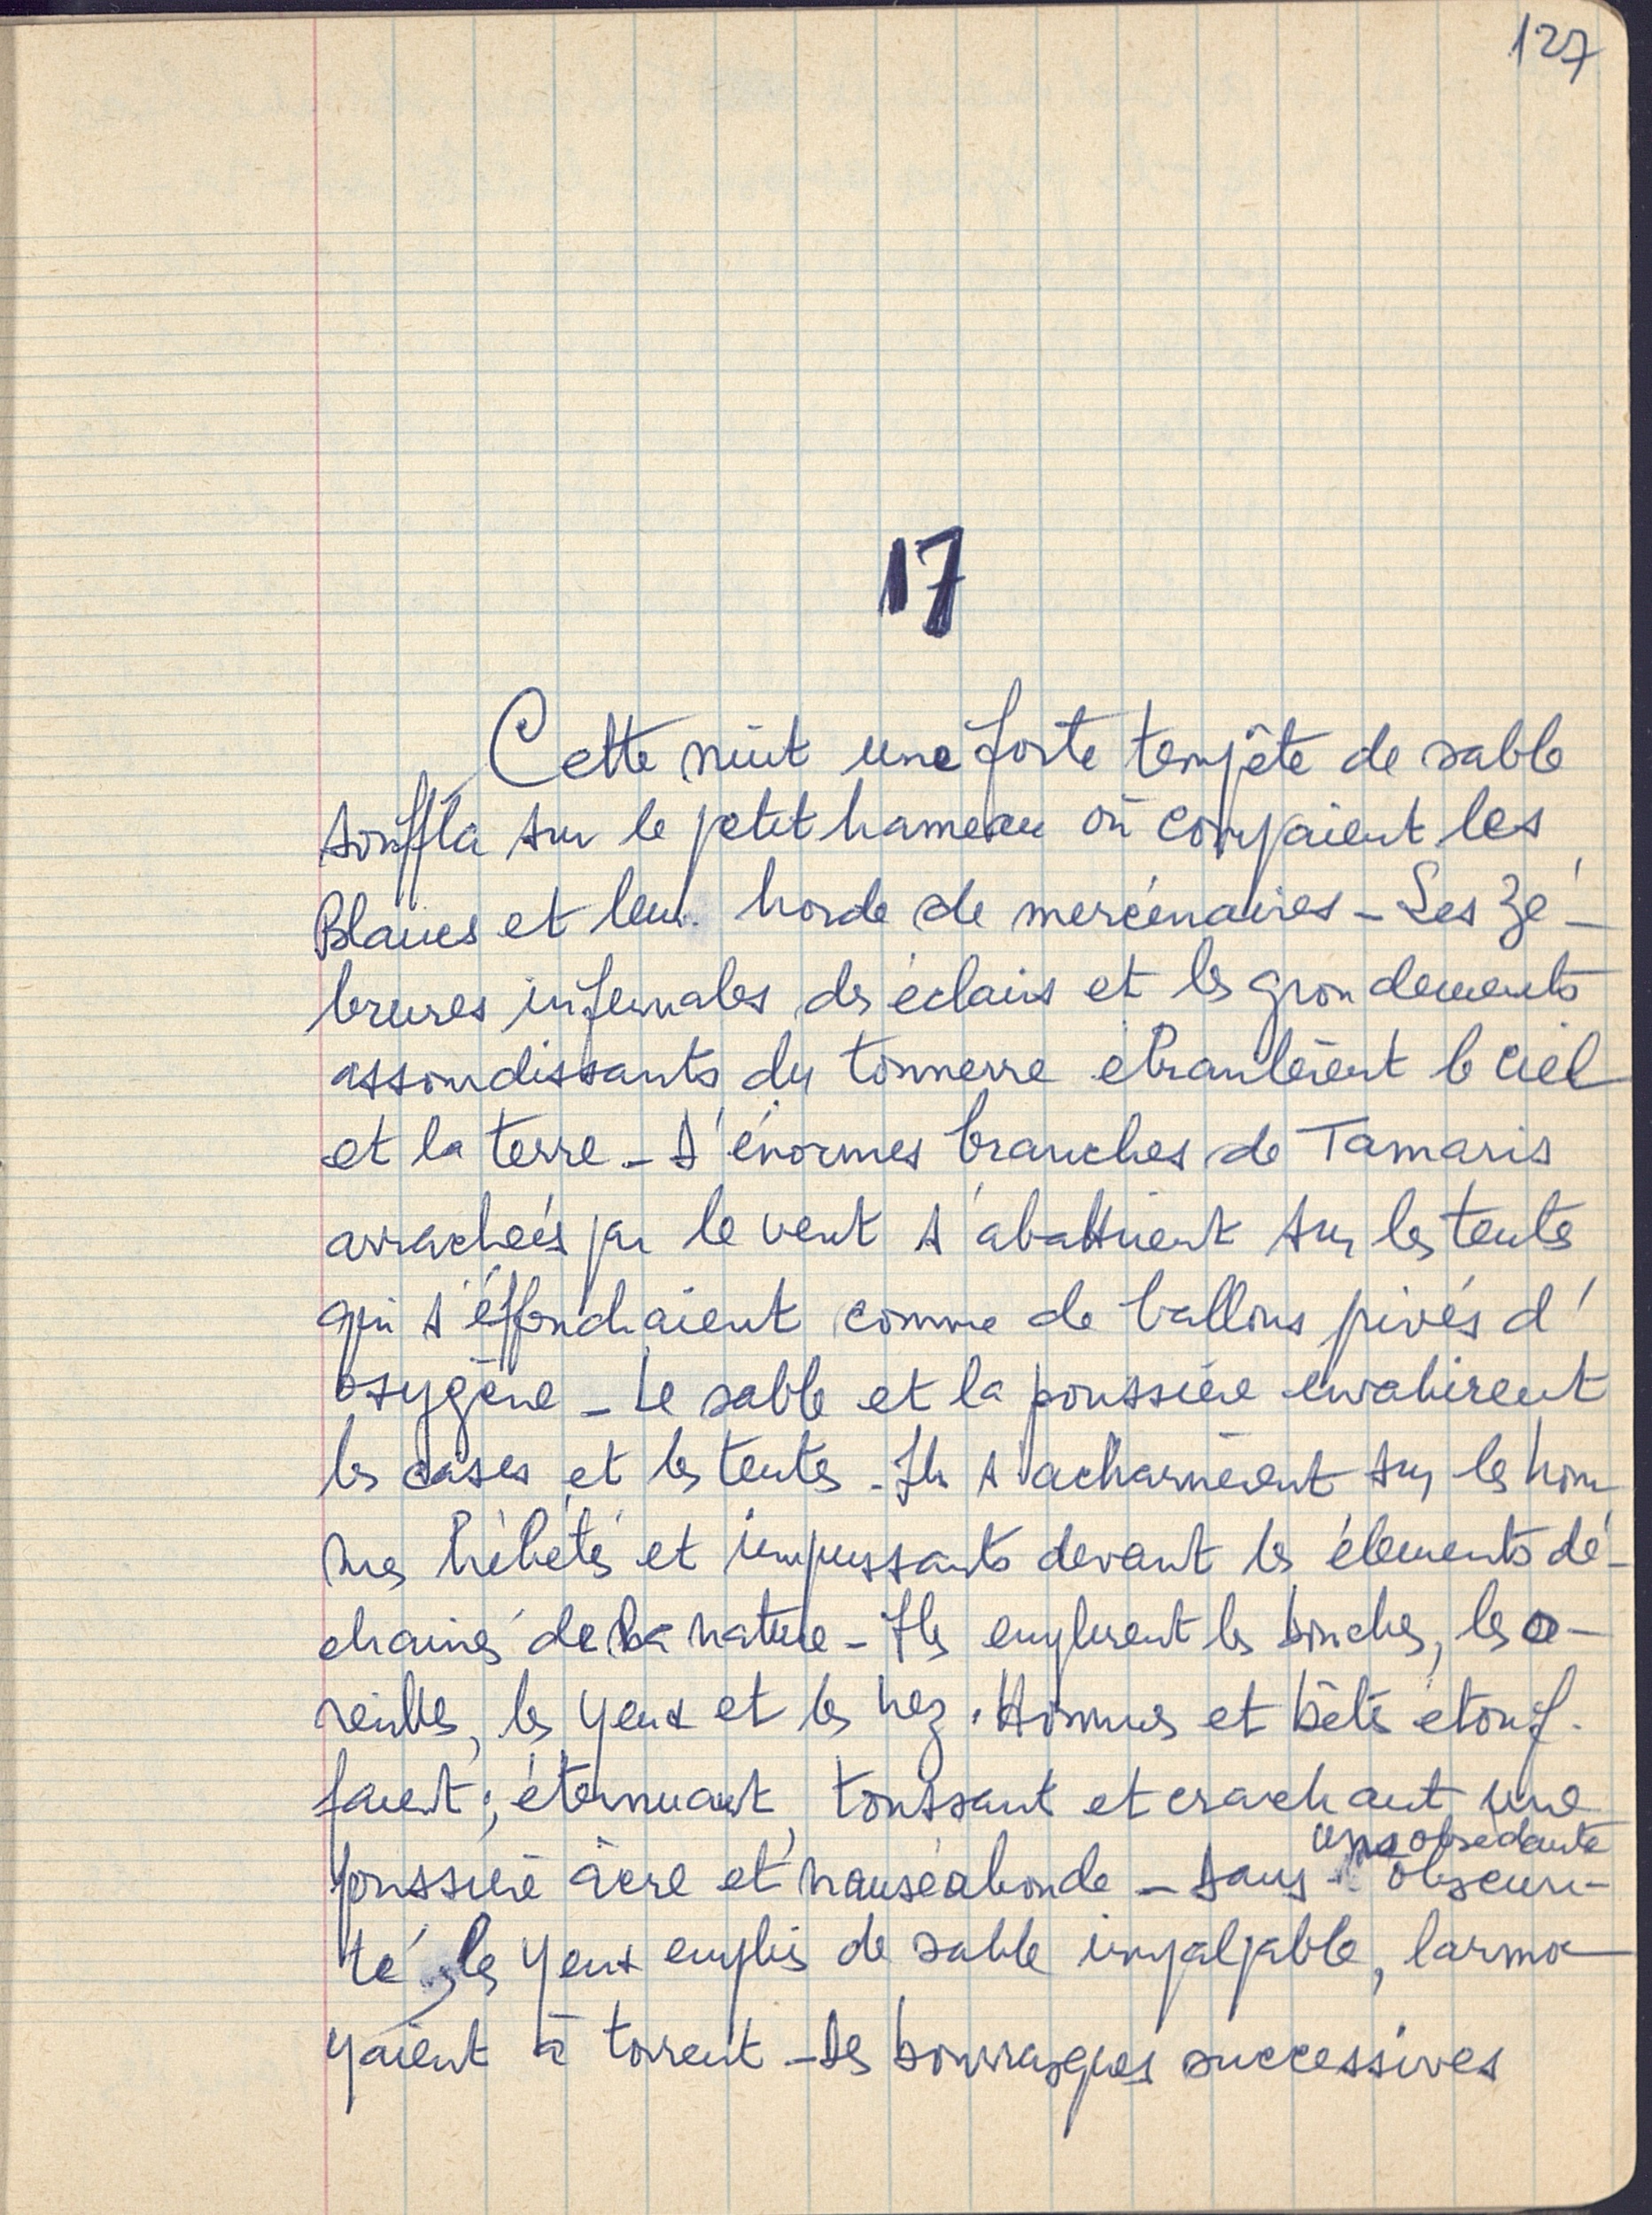 127
17
Cette nuit une forte tempête de sable
souffla sur le petit hameau où campaient les
Blancs et leur horde de mercénaires - Les zé-
brures infernales des éclairs et les grondements
assourdissants du tonnerre ebranlèrent le ciel
et la terre - D'énormes branches de Tamaris
arrachées par le vent s'abattirent sur les tentes
qui s'éffondraient comme de ballons privés d'
oxygène - Le sable et la poussière envahirent
les cases et les tentes - Ils s'acharnèrent sur les hom
mes hébétés et impuissants devant les élements dé-
chainés de la nature - Ils emplirent les bouches, les o-
reilles, les yeux et les nez. Hommes et bêtes etouf-
faient; éternuant, toussant et crachant une
poussière âcre et nauséabonde - Dans une obsedante
obscuri-
té, les yeux emplis de sable impalpable, larmo-
yaient à torrent - Des bourrasques successives